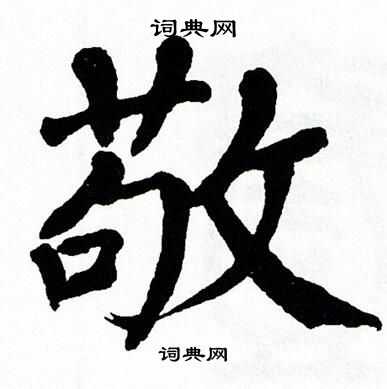 词典网
敬
词典网